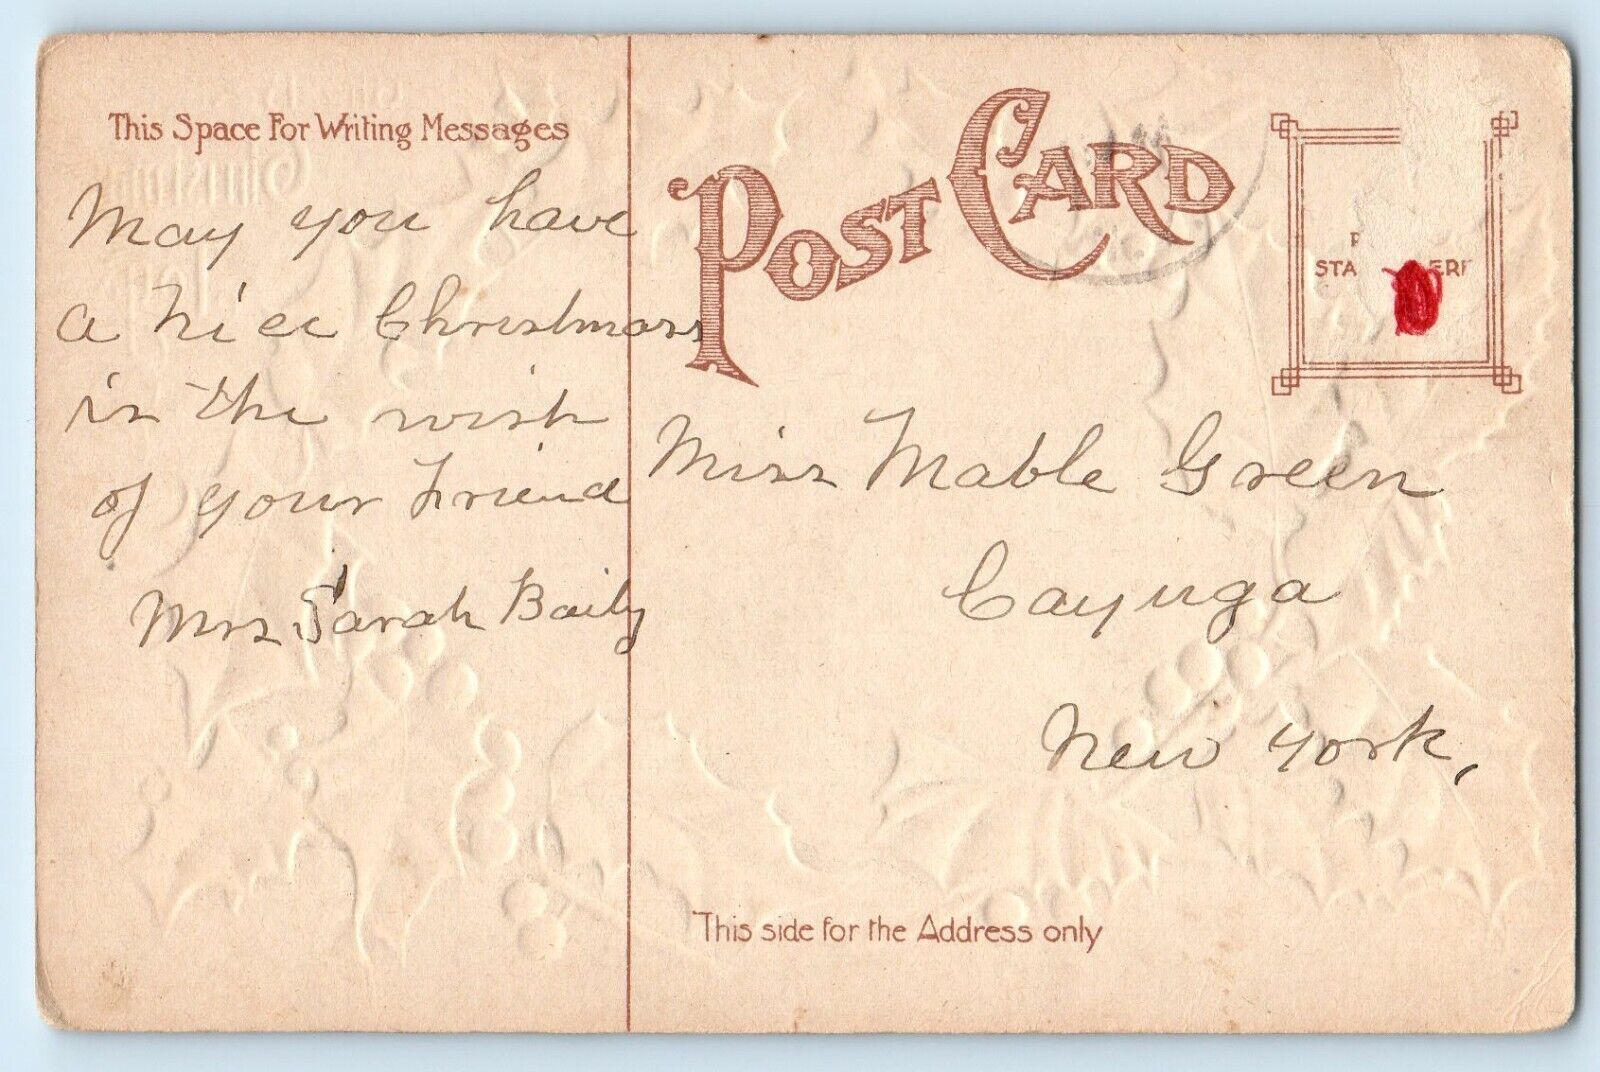 This Space For Writing Messages
May you have
a nice Christmass
in the wish
of your Friend
Mrs Sarah Baily
POST CARD
STA ERE
Miss Mable Green
Cayuga
New York,
This side for the Address only